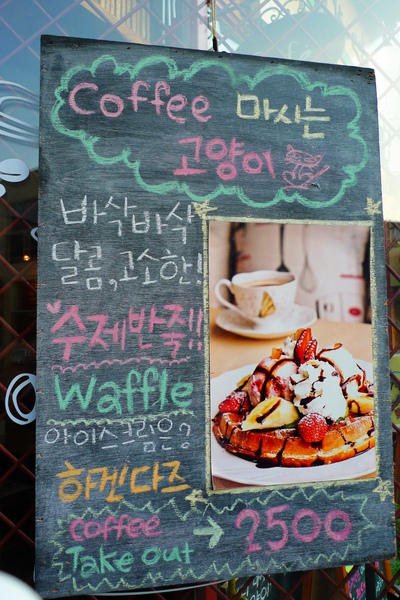 Coffee 마시는
고양이
바삭바삭
달콤,고소한!
수제반죽!!
Waffle
아이스크림은?
하겐다즈
coffee
Take out → 2500